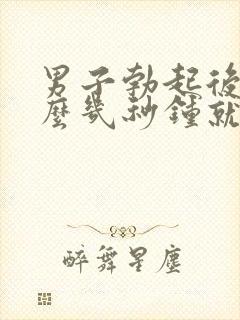 男子勃起後
麼幾秒鐘就
醉舞星塵